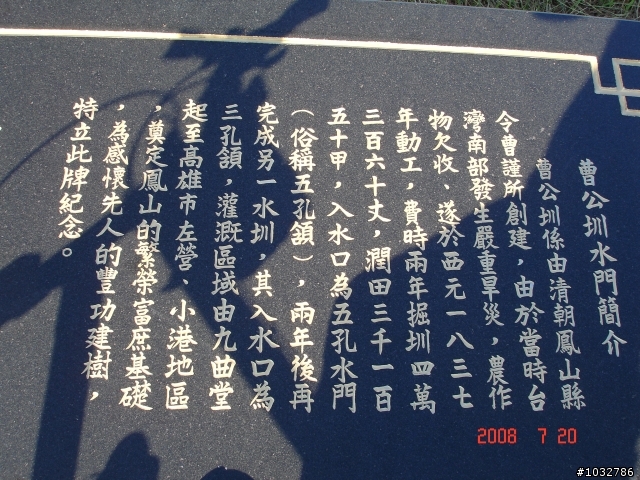 曹公圳水門簡介
曹公圳係由清朝鳳山縣
令曹謹所創建，由於當時台
灣南部發生嚴重旱災，農作
物欠收、遂於西元一八三七
年動工，費時兩年掘圳四萬
三百六十丈，潤田三千一百
五十甲，入水口為五孔水門
（俗稱五孔頷），兩年後再
完成另一水圳，其入水口為
三孔頷，灌溉區域由九曲堂
起至高雄市左營、小港地區
，奠定鳳山的繁榮富庶基礎
，為感懷先人的豐功建樹，
特立此牌紀念。
2008 7 20
#1032786